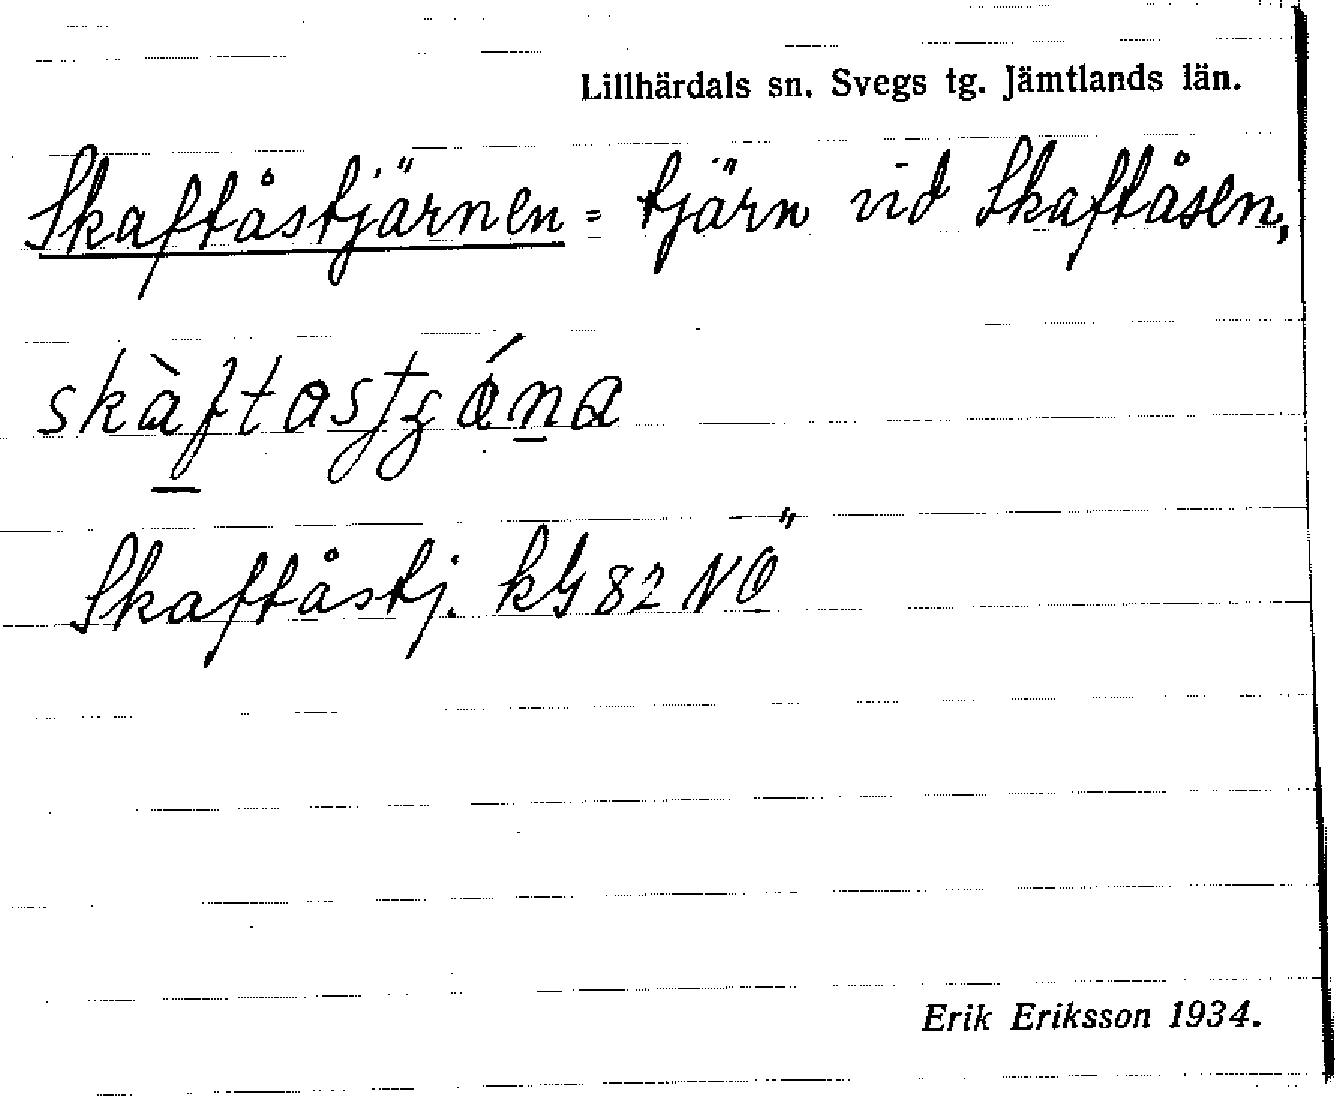 Lillhärdals sn. Svegs tg. Jämtlands län.
Skaftåstjärnen = tjärn vid Skaftåsen,
Skaftåstj. kG 82 NÖ
Erik Eriksson 1934.